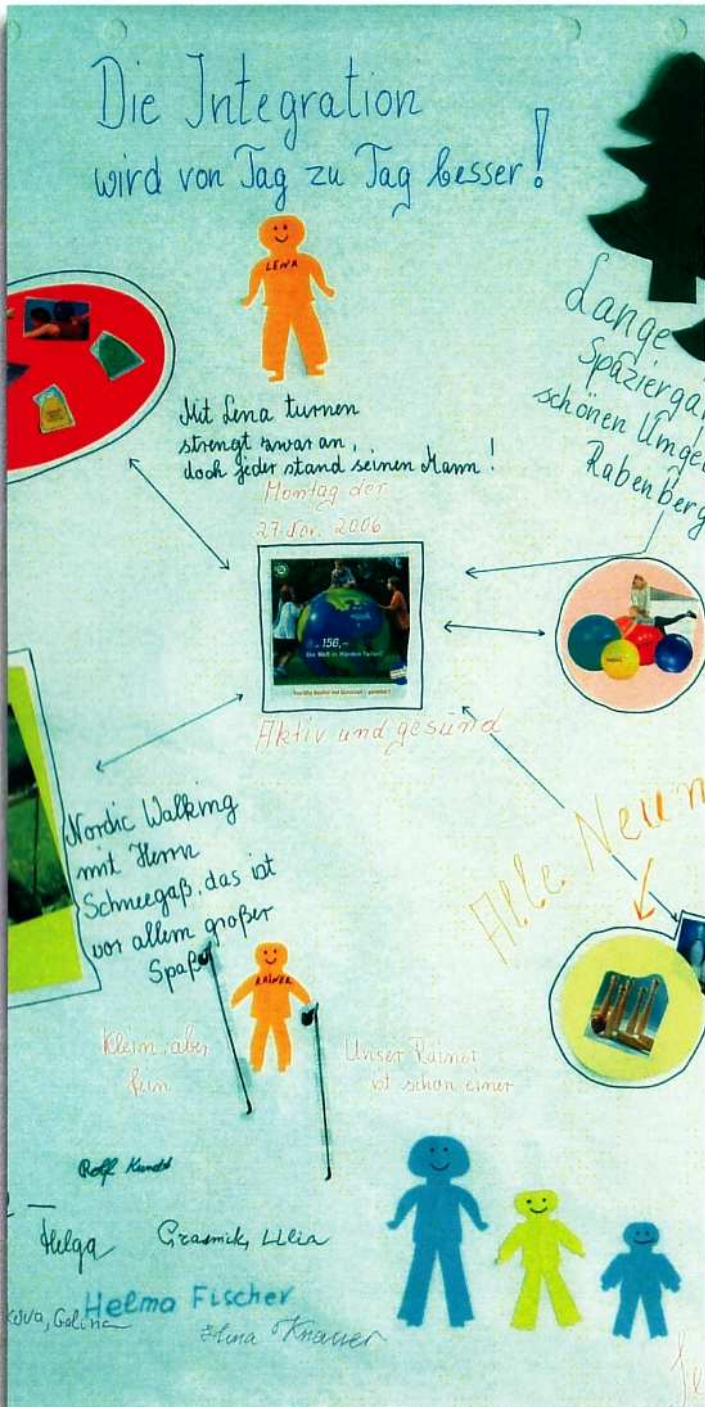 Die Integration
wird von Tag zu Tag besser!
LENA
Mit Lena turnen
strengt zwar an,
doch jeder stand seinen Mann!
Montag der
27. Nov. 2006
Lange
Spaziergä
schönen Umge
Rabenberg
156,-
Die Welt in Händen halten!
Aktiv und gesund
Alle Neun
Nordic Walking
mit Herrn
Schneegaß, das ist
vor allem großer
Spaß
RAINER
Klein, aber
fein
Unser Rainer
ist schon einer
Rolf
Helga
Grasmick, Lilia
Helma Fischer
kova, Galina
Elina Knauer